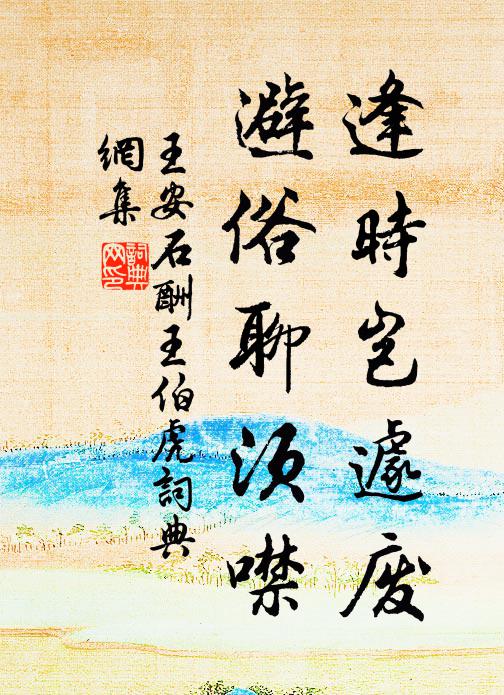 逢時豈遽廢
避俗聊須噤
王安石酬王伯虎詞典
網集
詞典
网印